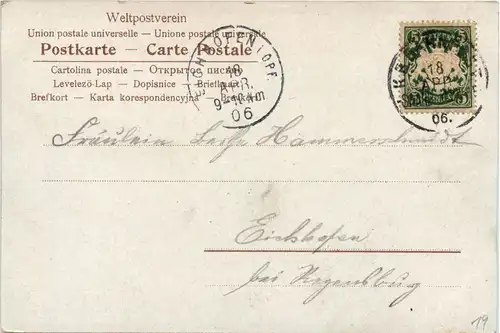 Weltpostverein
Union postale universelle — Unione postale universale
Postkarte — Carte Postale
Cartolina postale — Открытое письмо
Levelező-Lap — Dopisnice — Briefkaart
Brefkort — Karta korespondencyjna — Brevkort
EICHHOFEN (OPF.)
18
APR.
06
5
5
18
APR.
06.
Fräulein Luise Hammerschmidt
Eichhofen
bei Regensburg
19